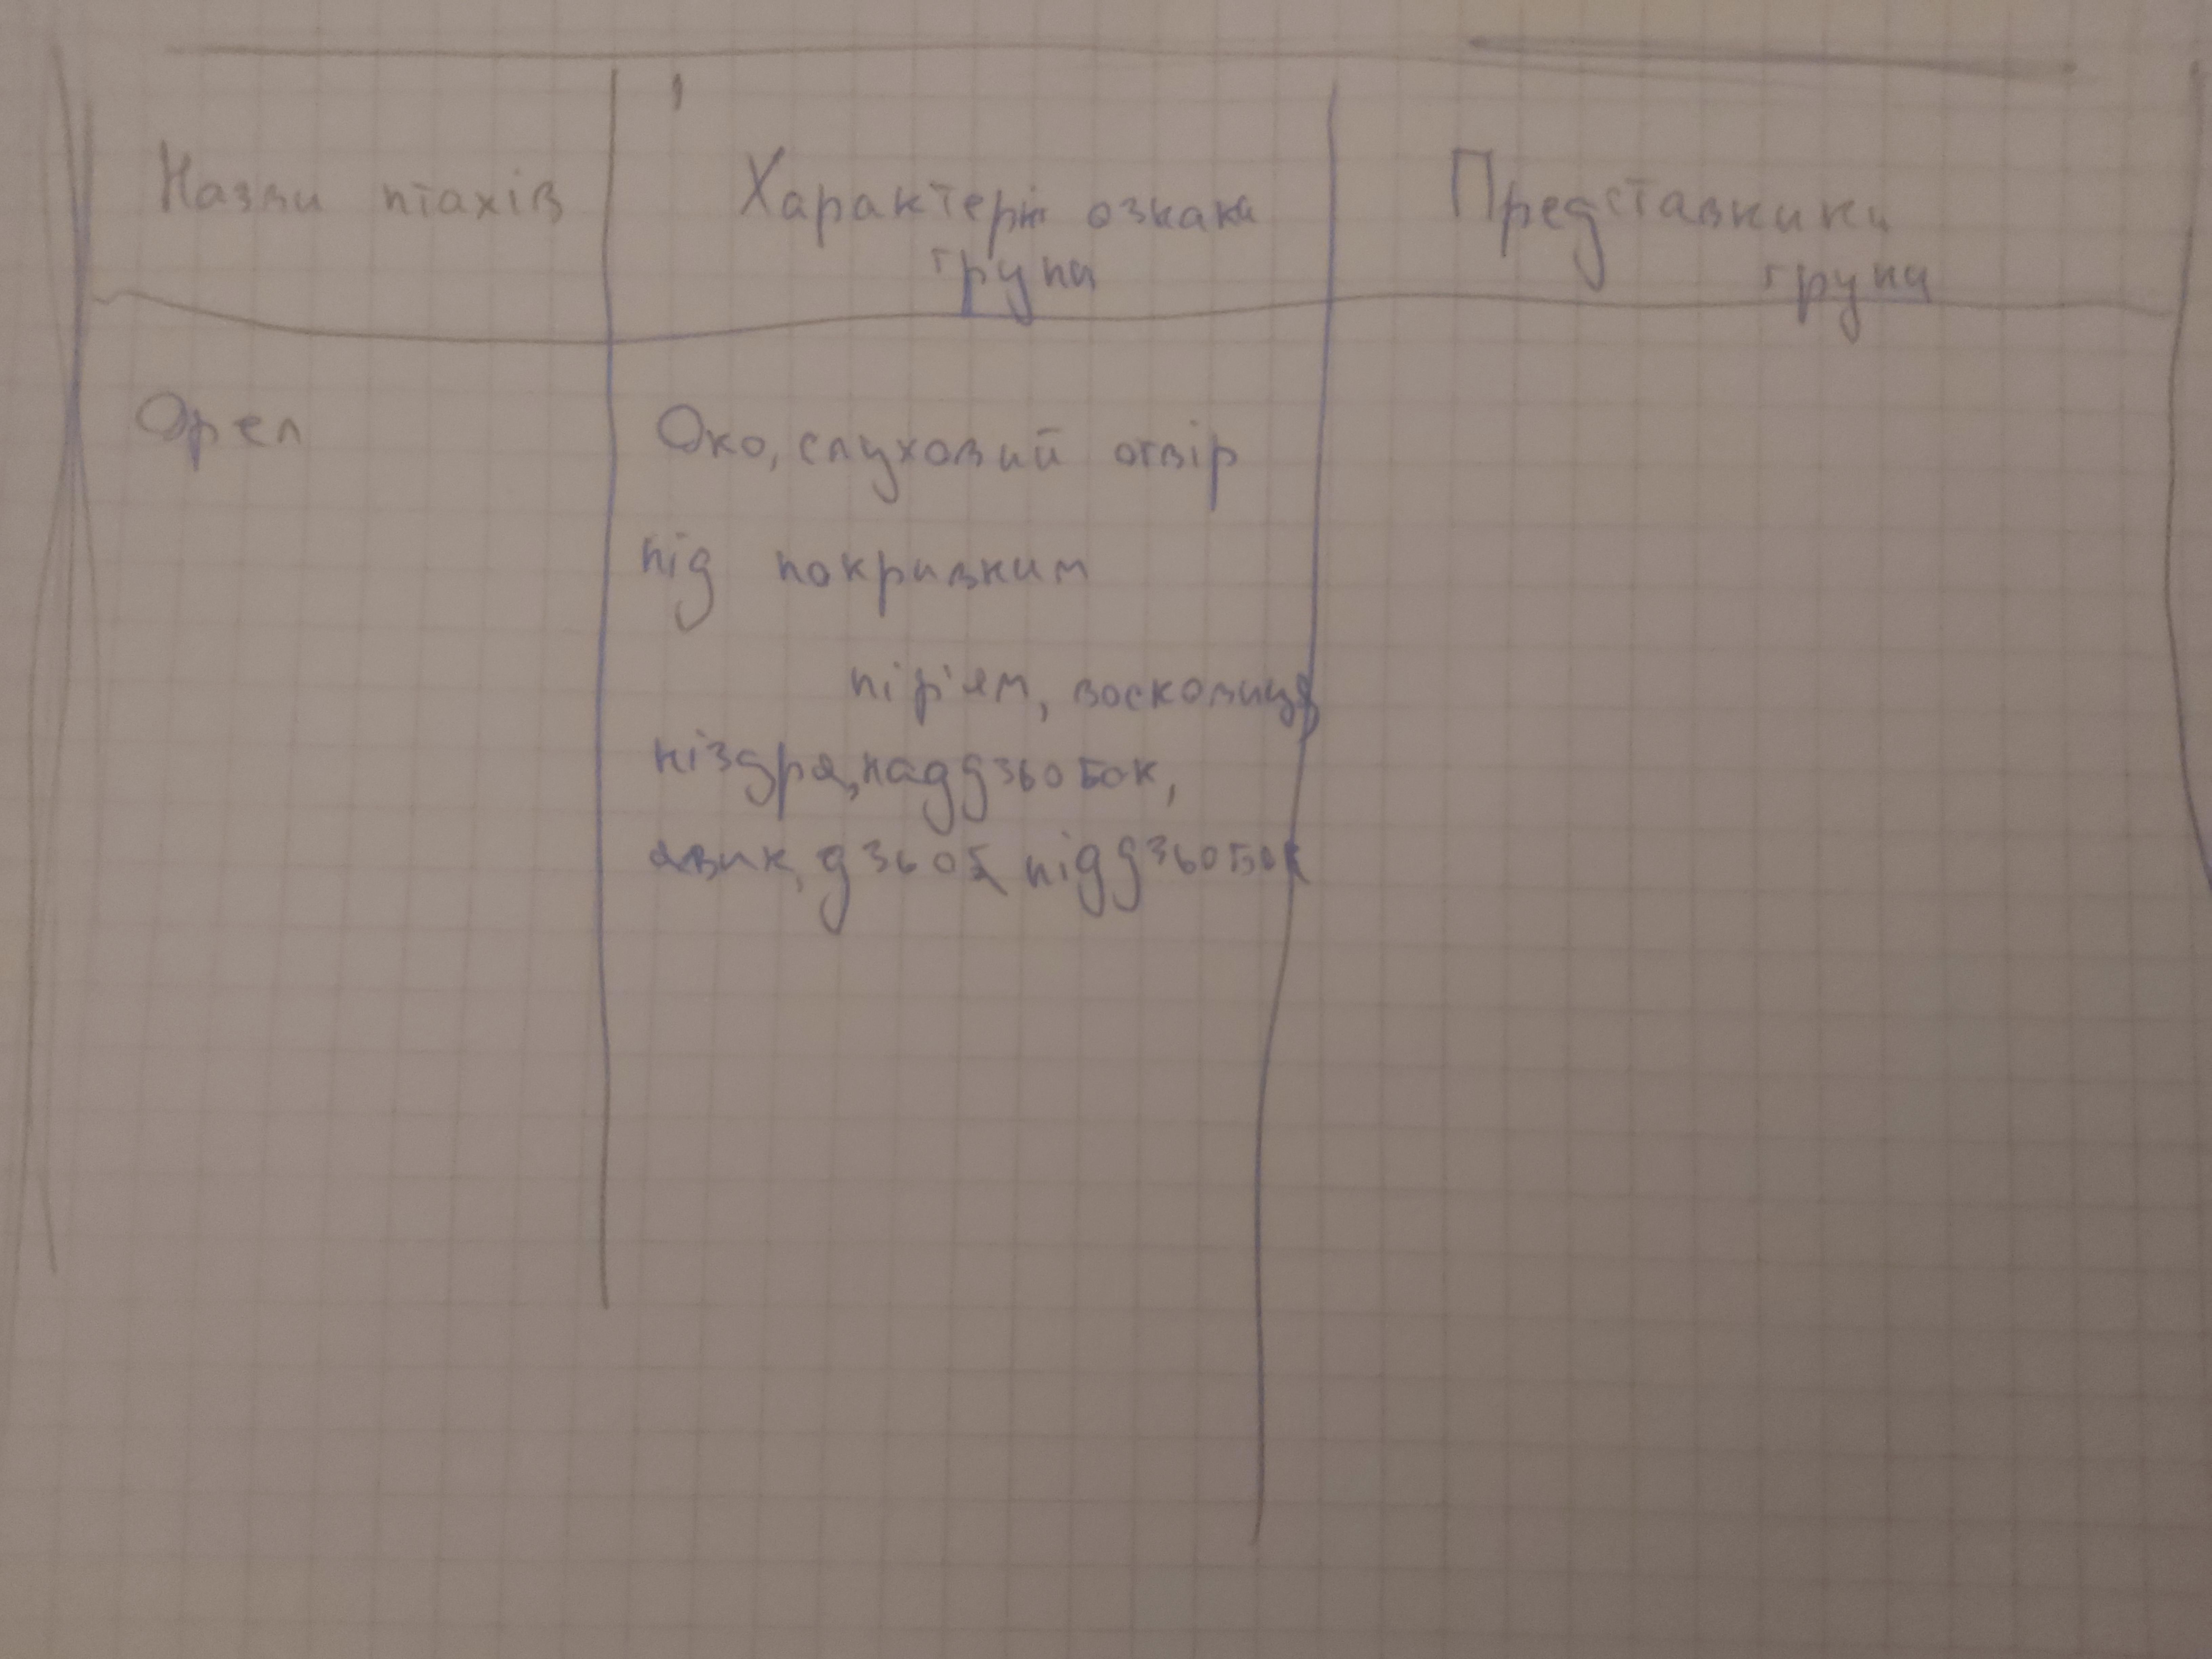 Назви птахів
Характерні ознаки
групи
Представники
групи
Орел
Око, слуховий отвір
під покривним
пір'ям, восковиця
ніздря, наддзьобок,
язик, дзьоб, піддзьобок